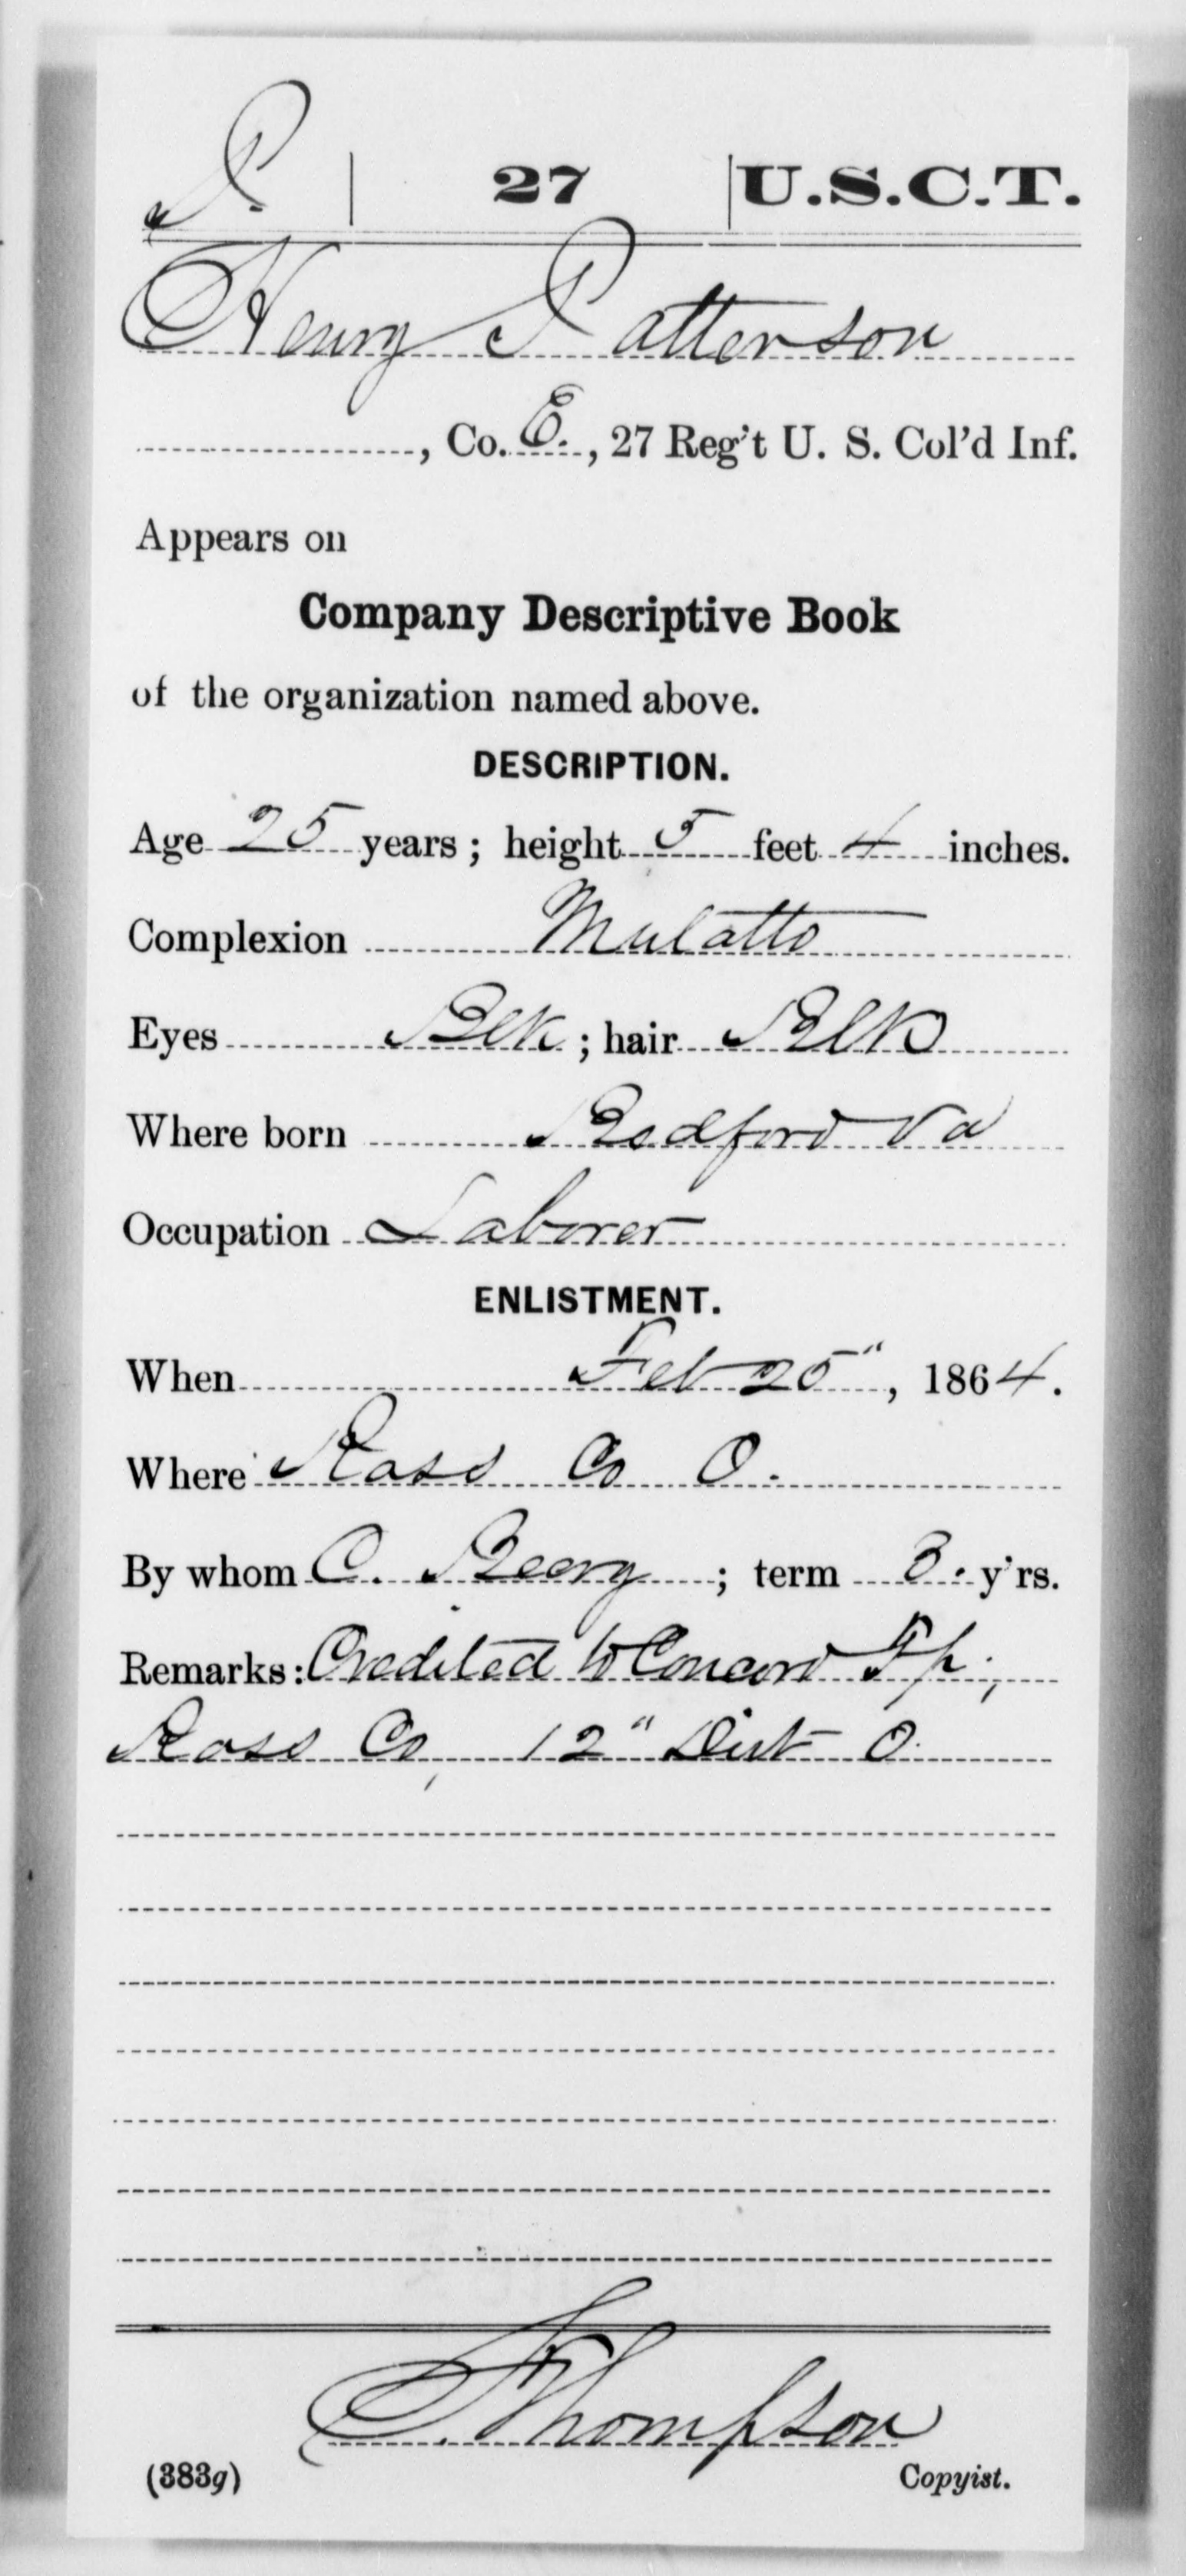 P. | 27 | U.S.C.T.
Henry Patterson
, Co. E., 27 Reg't U. S. Col'd Inf.
Appears on
Company Descriptive Book
of the organization named above.
DESCRIPTION.
Age 25 years; height 5 feet 4 inches.
Complexion Mulatto
Eyes Blk; hair Blk
Where born Bedford Va
Occupation Laborer
ENLISTMENT.
When Feb 25", 1864.
Where Ross Co O.
By whom C. Beery; term 3. y'rs.
Remarks: Credited to Concord Tp.,
Ross Co, 12" Dist O.
C. Thompson
(383g) Copyist.